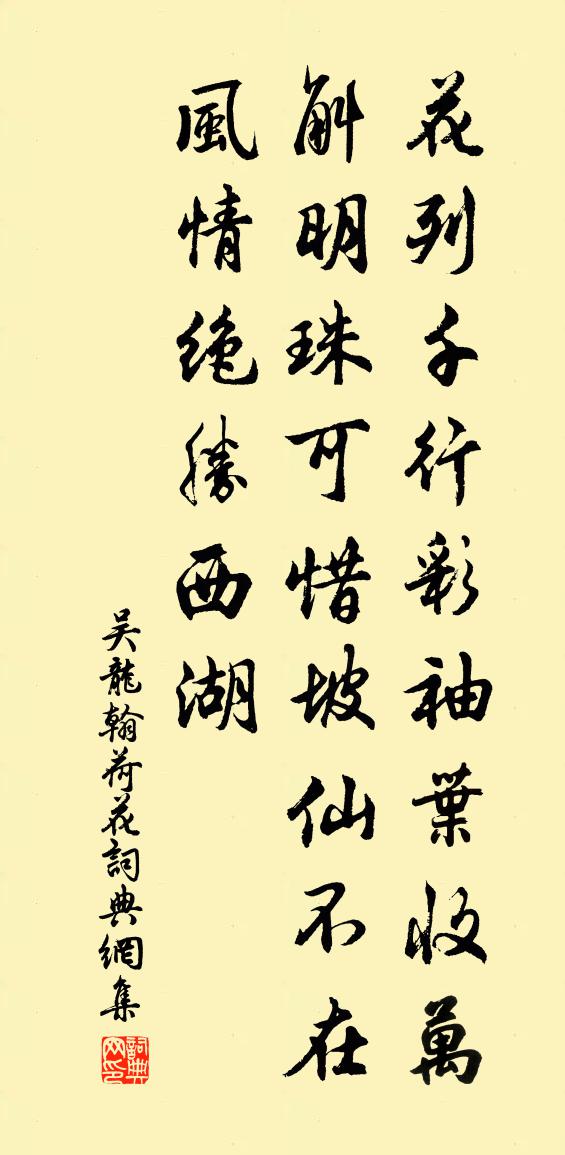 花列千行彩袖葉收萬
斛明珠可惜坡仙不在
風情絶勝西湖
吳龍翰荷花詞典網集
詞典網印